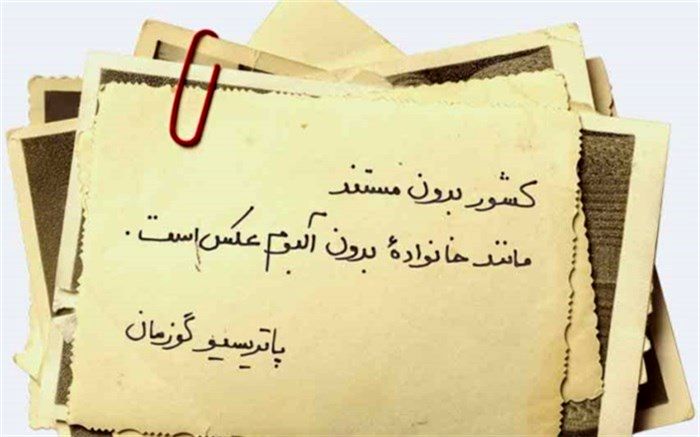 کشور بدون مستند
مانند خانوادهٔ بدون آلبوم عکس است.
پاتریسیو گوزمان